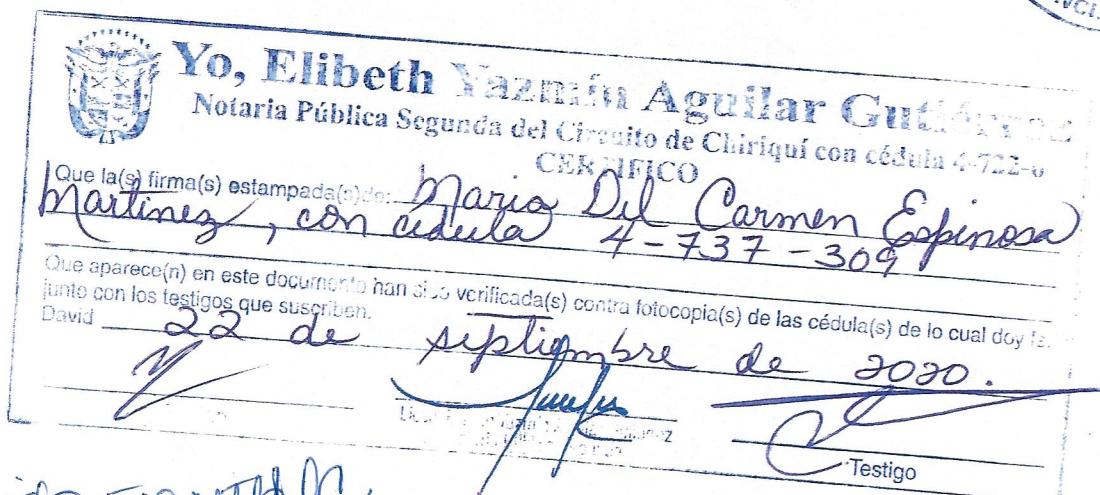 Yo, Elibeth Yazmín Aguilar Gutiérrez
Notaria Pública Segunda del Circuito de Chiriquí con cédula 4-722-6
CERTIFICO
Que la(s) firma(s) estampada(s) de: Maria Del Carmen Espinosa
Martinez, con cédula 4-737-309
Que aparece(n) en este documento han sido verificada(s) contra fotocopia(s) de las cédula(s) de lo cual doy fe.
junto con los testigos que suscriben.
David 22 de septiembre de 2020.
Testigo